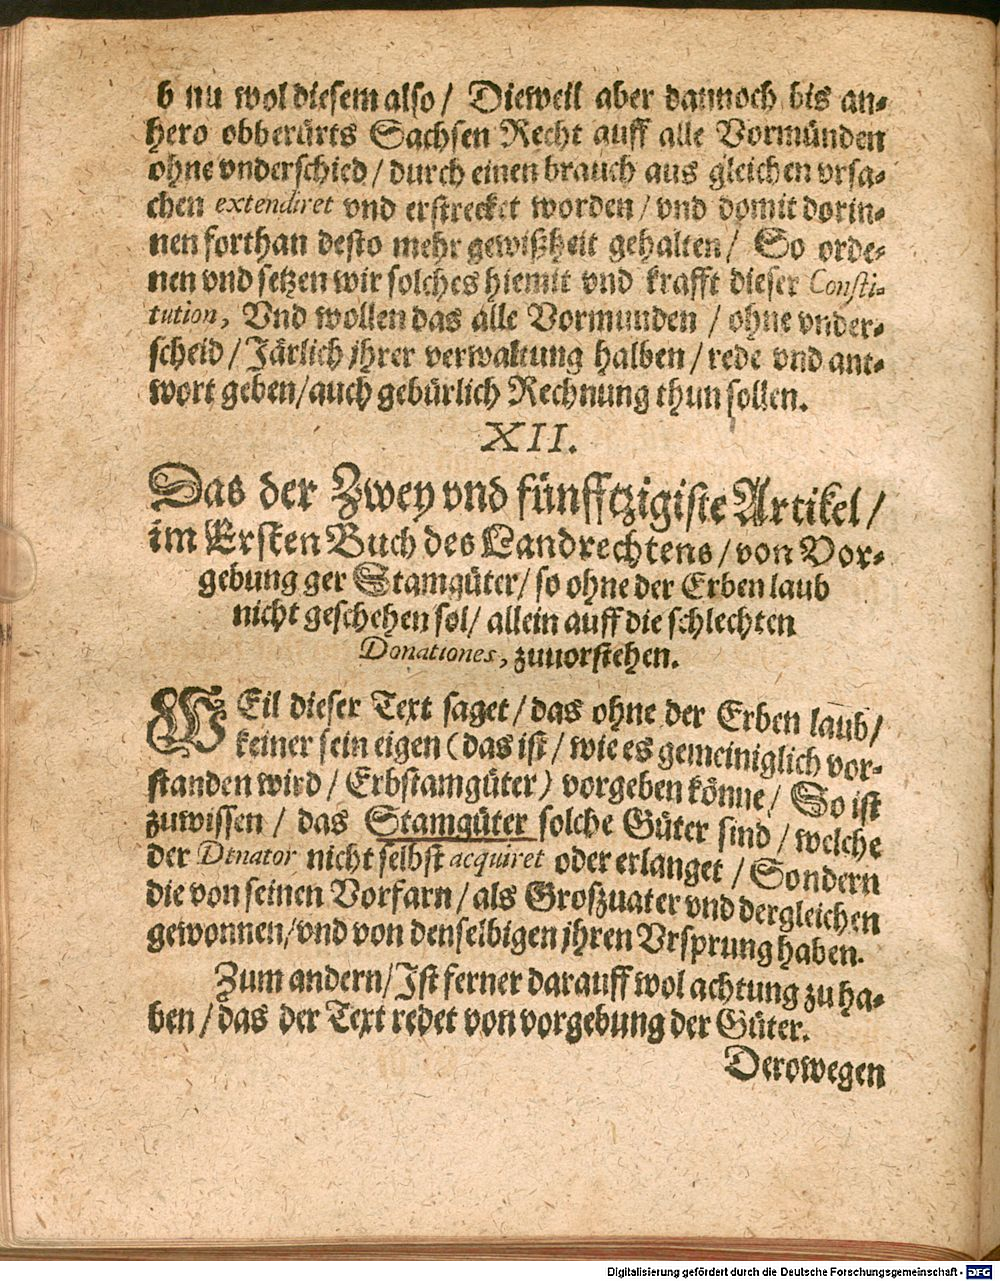 b nu wol diesem also / Dieweil aber dannoch bis an-
hero obberürts Sachsen Recht auff alle Vormünden
ohne vnderschied / durch einen brauch aus gleichen vrsa-
chen extendiret vnd erstrecket worden / vnd domit dorin-
nen forthan desto mehr gewißheit gehalten / So orde-
nen vnd setzen wir solches hiemit vnd krafft dieser Consti-
tution, Vnd wollen das alle Vormunden / ohne vnder-
scheid / Järlich jhrer verwaltung halben / rede vnd ant-
wort geben / auch gebürlich Rechnung thun sollen.
XII.
Das der Zwey vnd fünfftzigiste Artikel /
im Ersten Buch des Landrechtens / von Vor-
gebung ger Stamgüter / so ohne der Erben laub
nicht geschehen sol / allein auff die schlechten
Donationes, zuuorstehen.
WEil dieser Text saget / das ohne der Erben laub /
keiner sein eigen (das ist / wie es gemeiniglich vor-
standen wird / Erbstamgüter) vorgeben könne / So ist
zuwissen / das Stamgüter solche Güter sind / welche
der Dinator nicht selbst acquiret oder erlanget / Sondern
die von seinen Vorfarn / als Großuater vnd dergleichen
gewonnen / vnd von denselbigen jhren Vrsprung haben.
Zum andern / Ist ferner darauff wol achtung zu ha-
ben / das der Text redet von vorgebung der Güter.
Derowegen
Digitalisierung gefördert durch die Deutsche Forschungsgemeinschaft - DFG